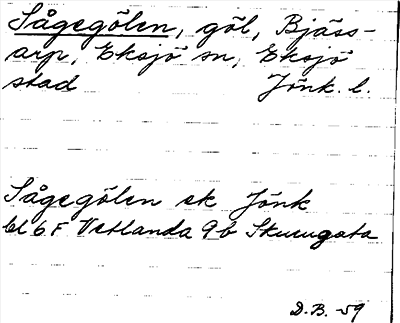 Sågegölen, göl, Bjäss-
arp, Eksjö sn, Eksjö
stad Jönk. l.
Sågegölen ek Jönk
bl 6F Vetlanda 9b Skurugata
D.B. -59